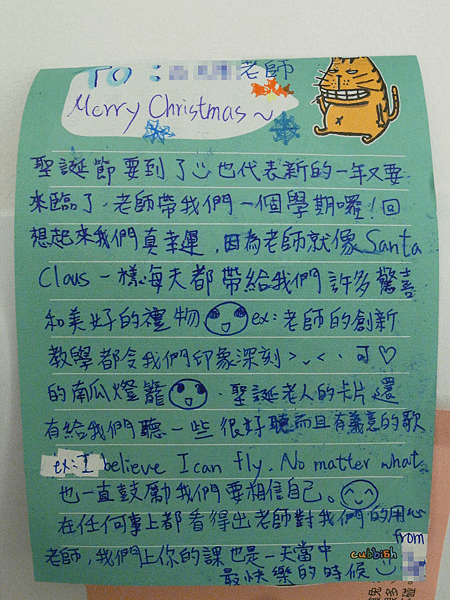 TO: 老師
Merry Christmas~
聖誕節要到了 也代表新的一年又要
來臨了、老師帶我們一個學期囉!回
想起來我們真幸運,因為老師就像Santa
Claus 一樣每天都帶給我們許多驚喜
和美好的禮物 ex:老師的創新
教學都令我們印象深刻>.<、可♡
的南瓜燈籠 、聖誕老人的卡片還
有給我們聽一些很好聽而且有義意的歌
ex:I believe I can fly. No matter what
也一直鼓勵我們要相信自己。
在任何事上都看得出老師對我們的用心
老師,我們上你的課也是一天當中
最快樂的時候
from
cubbish